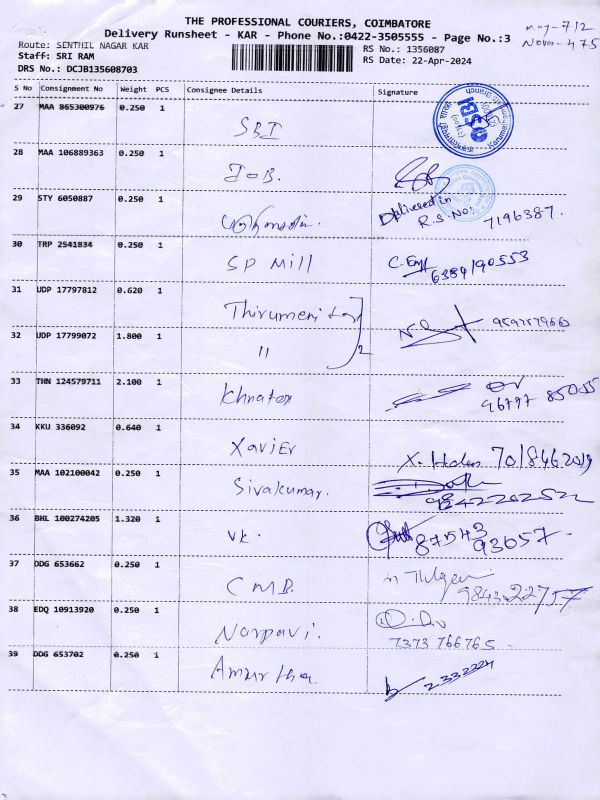 THE PROFESSIONAL COURIERS, COIMBATORE
Delivery Runsheet - KAR - Phone No.:0422-3505555 - Page No.:3
Route: SENTHIL NAGAR KAR
RS No.: 1356087
Staff: SRI RAM
RS Date: 22-Apr-2024
DRS No.: DCJB135608703
S No Consignment No Weight PCS Consignee Details Signature
27 MAA 865300976 0.250 1 SBI
28 MAA 106889363 0.250 1
29 STY 6050887 0.250 1 Delivered in R.S. No: 7196387.
30 TRP 2541834 0.250 1 SP Mill 6384190553
31 UDP 17797812 0.620 1 Thirumeni
32 UDP 17799072 1.800 1 11 2
33 THN 124579711 2.100 1 96797 85055
34 KKU 336092 0.640 1 Xavier 7018462019
35 MAA 102100042 0.250 1 Sivakumar. 9842202522
36 BHL 100274205 1.320 1 VK. 87543 93657.
37 DDG 653662 0.250 1 CMB. 9843522757
38 EDQ 10913920 0.250 1 Narpavi. 7373 766765
39 DDG 653702 0.250 1 Amurtha 2332224